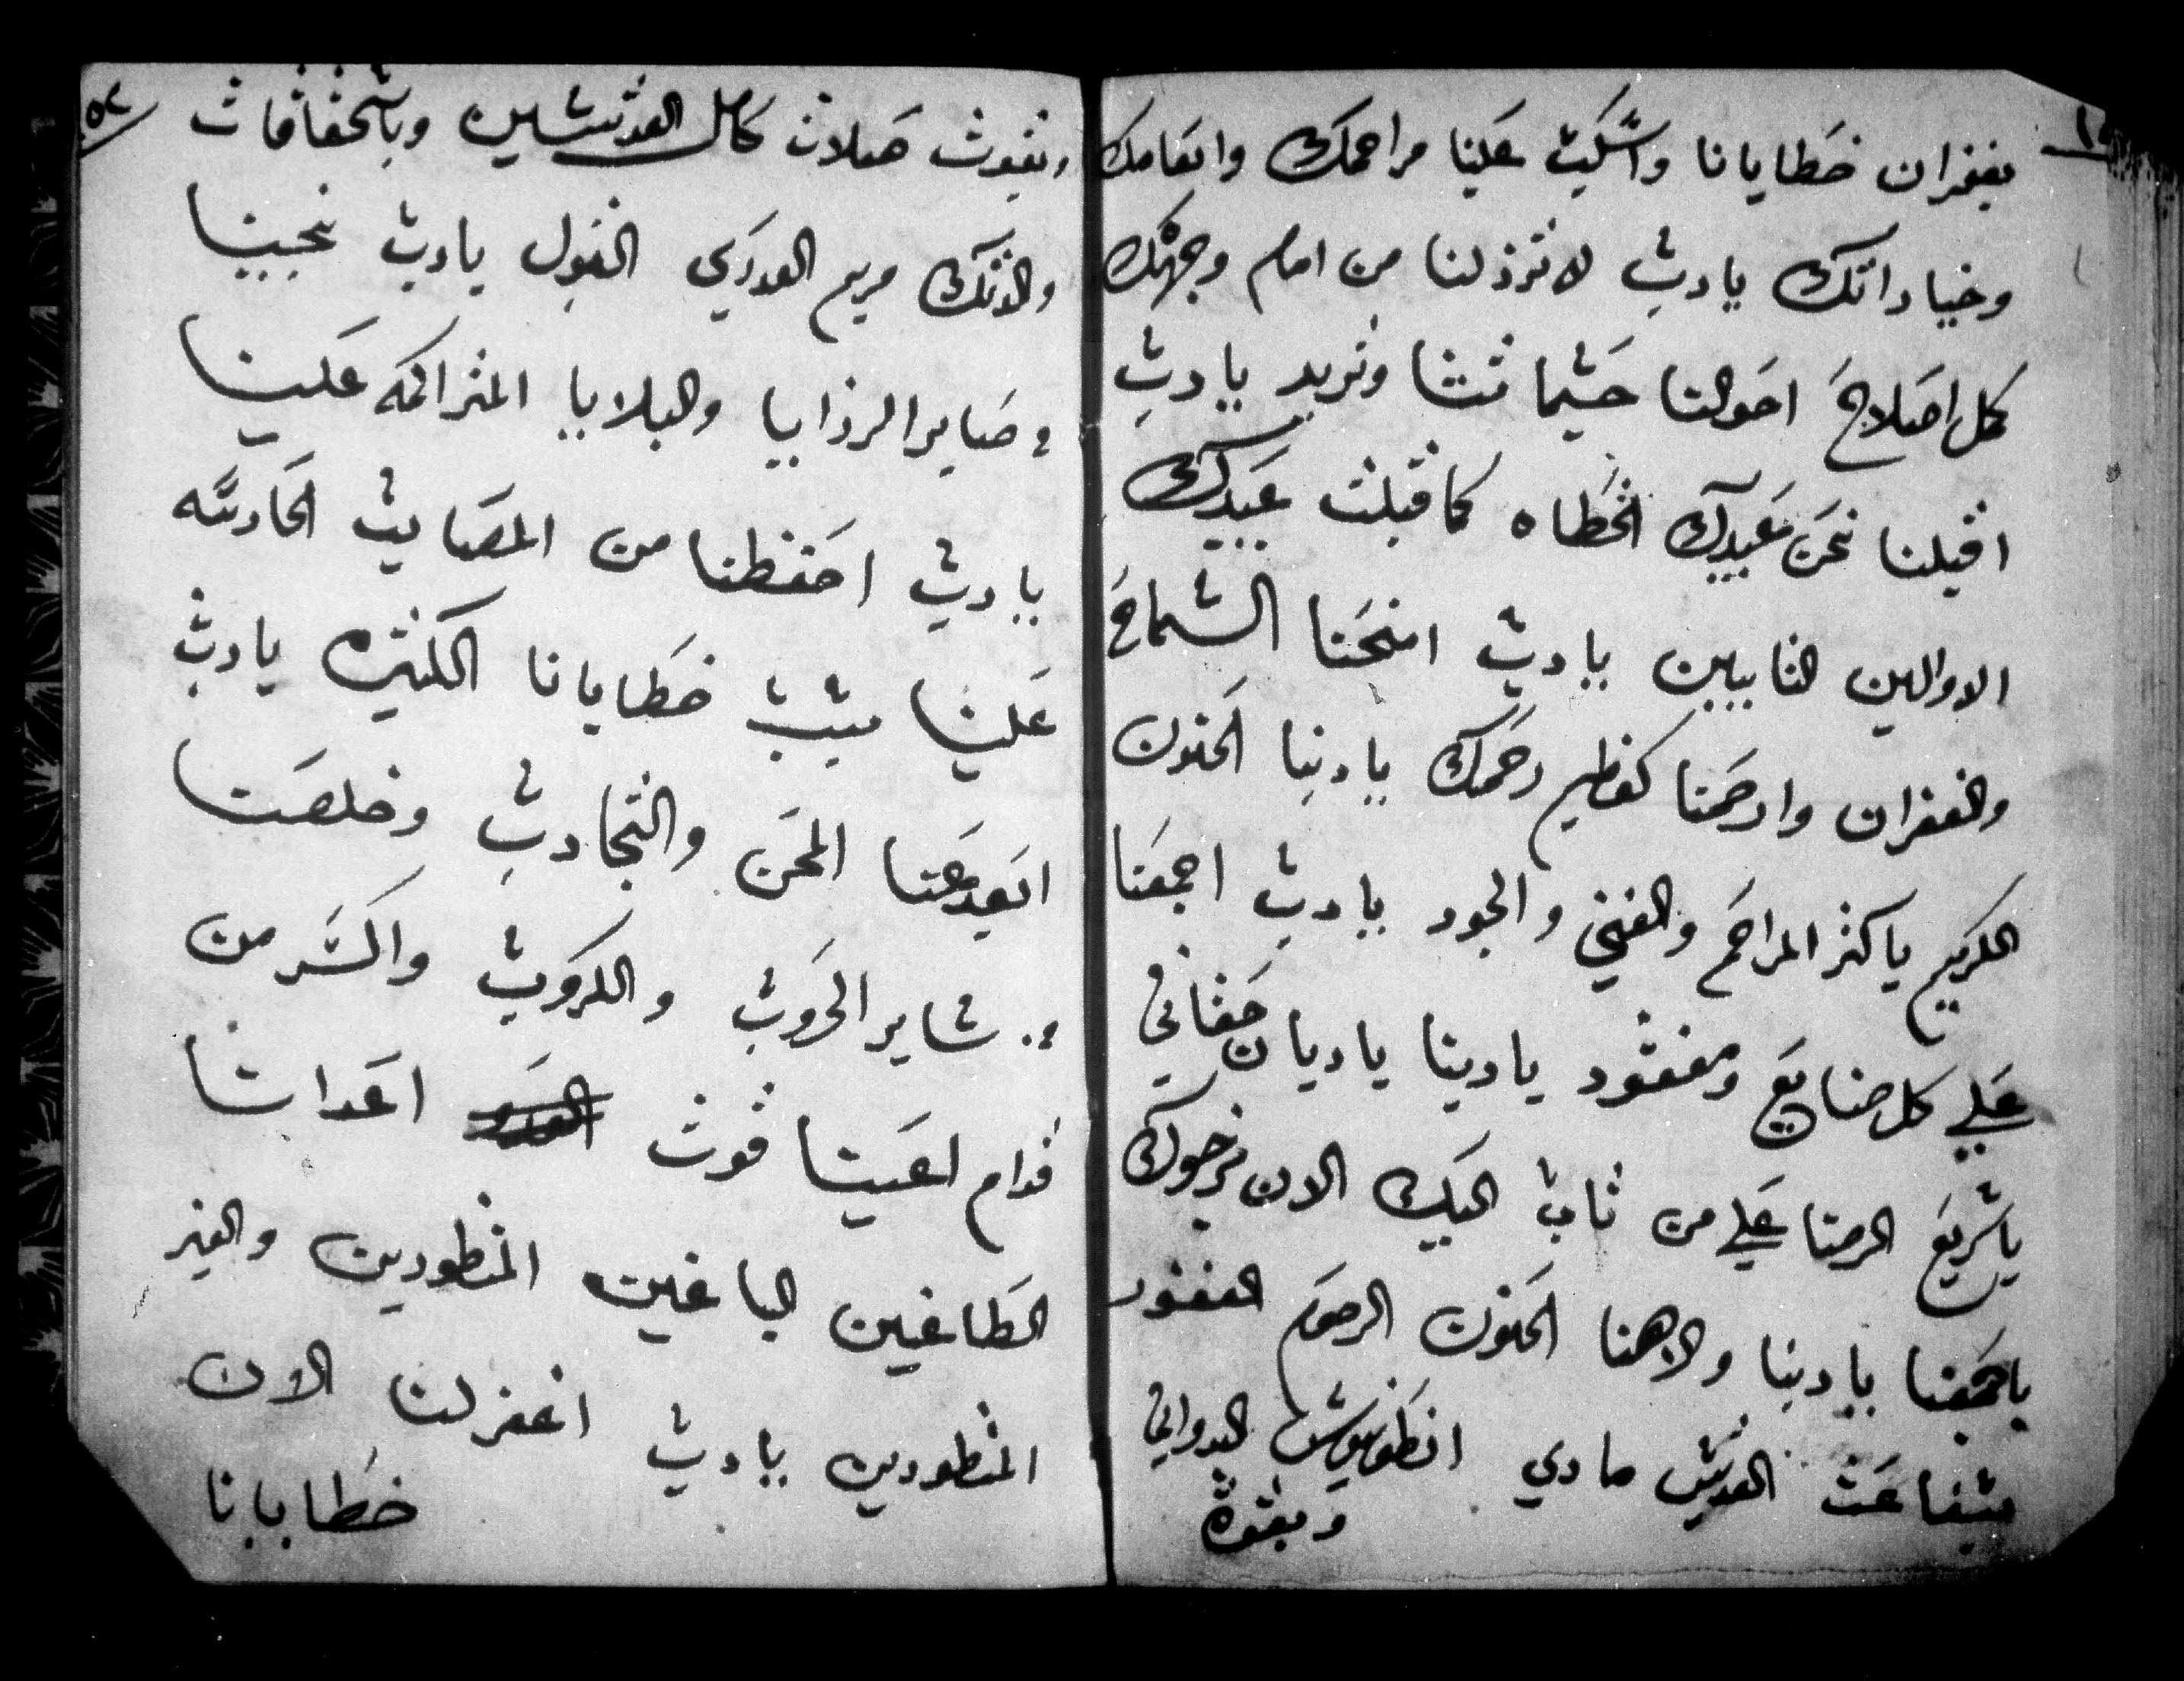 بغفران خطايانا واسكب علينا مراحمك وانعامك
وخياراتك يارب لا ترذلنا من امام وجهك
كل اصلاح احوالنا حسبما تشا وتريد يارب
اقبلنا نحن عبيدك الخطاه كما قبلت عبيدك
الاوالين التايبين يارب امنحنا السماح
والغفران وارحمنا كعظيم رحمتك ياربنا الحنون
الكريم ياكثر المراحم والغني والجود يارب اجمعنا
علي كل ضايع ومفقود ياربنا ياديان حقاني
ياسريع الرضا علي من تاب اليك الان نرجوك
ياجمعنا ياربنا والاهنا الحنون الرحوم الغفور
بشفاعت القديس ماري انطونيوس البدواني
وبقوة
وبقوت صلات كامل القديسين وباستحقاقات
والدتك مريم العدري البتول يارب نجينا
من ساير الرزايا والبلايا المتراكمه علينا
يارب احفظنا من المصايب الحادسه
علينا بسبب خطايانا الكتيره يارب
ابعد عنا المحن والتجارب وخلصنا
من ساير الحروب والكروب واكسر من
قدام اعيننا قوت اعداىنا
الطاغين الباغين المنظورين والغير
المنظورين يارب اغفر لنا الان
خطايانا